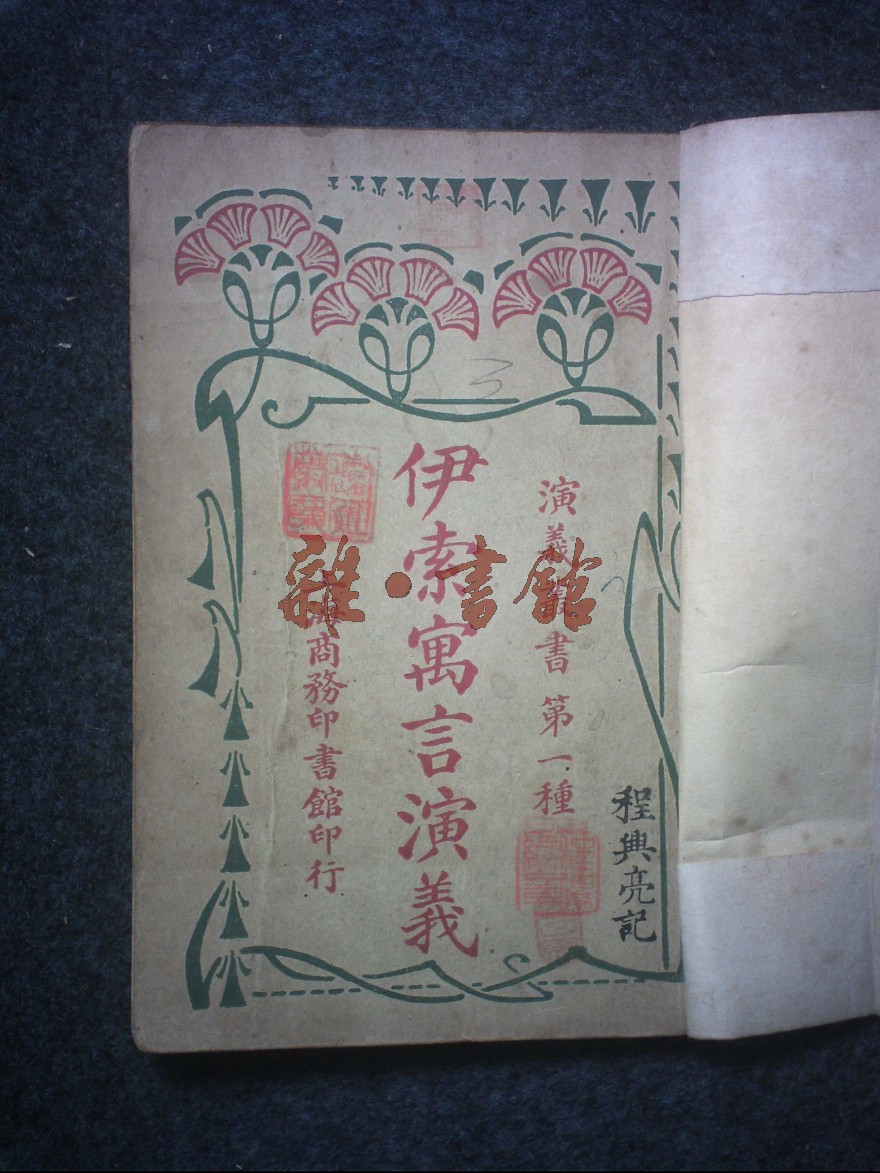 演義叢書第一種
伊索寓言演義
上海商務印書館印行
程興亮記
雜·書館